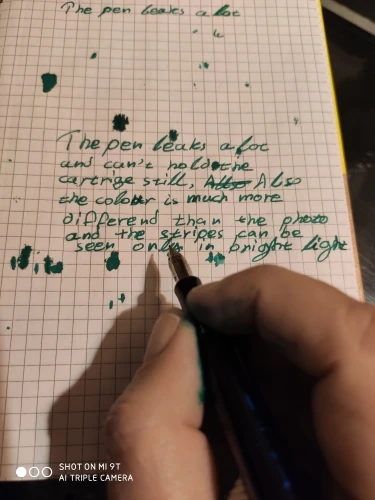 The pen leaks a lot
The pen leaks a lot
and can't hold the
cartrige still, Also Also
the colour is much more
differend than the photo
and the stripes can be
seen only in bright light
SHOT ON MI 9T
AI TRIPLE CAMERA